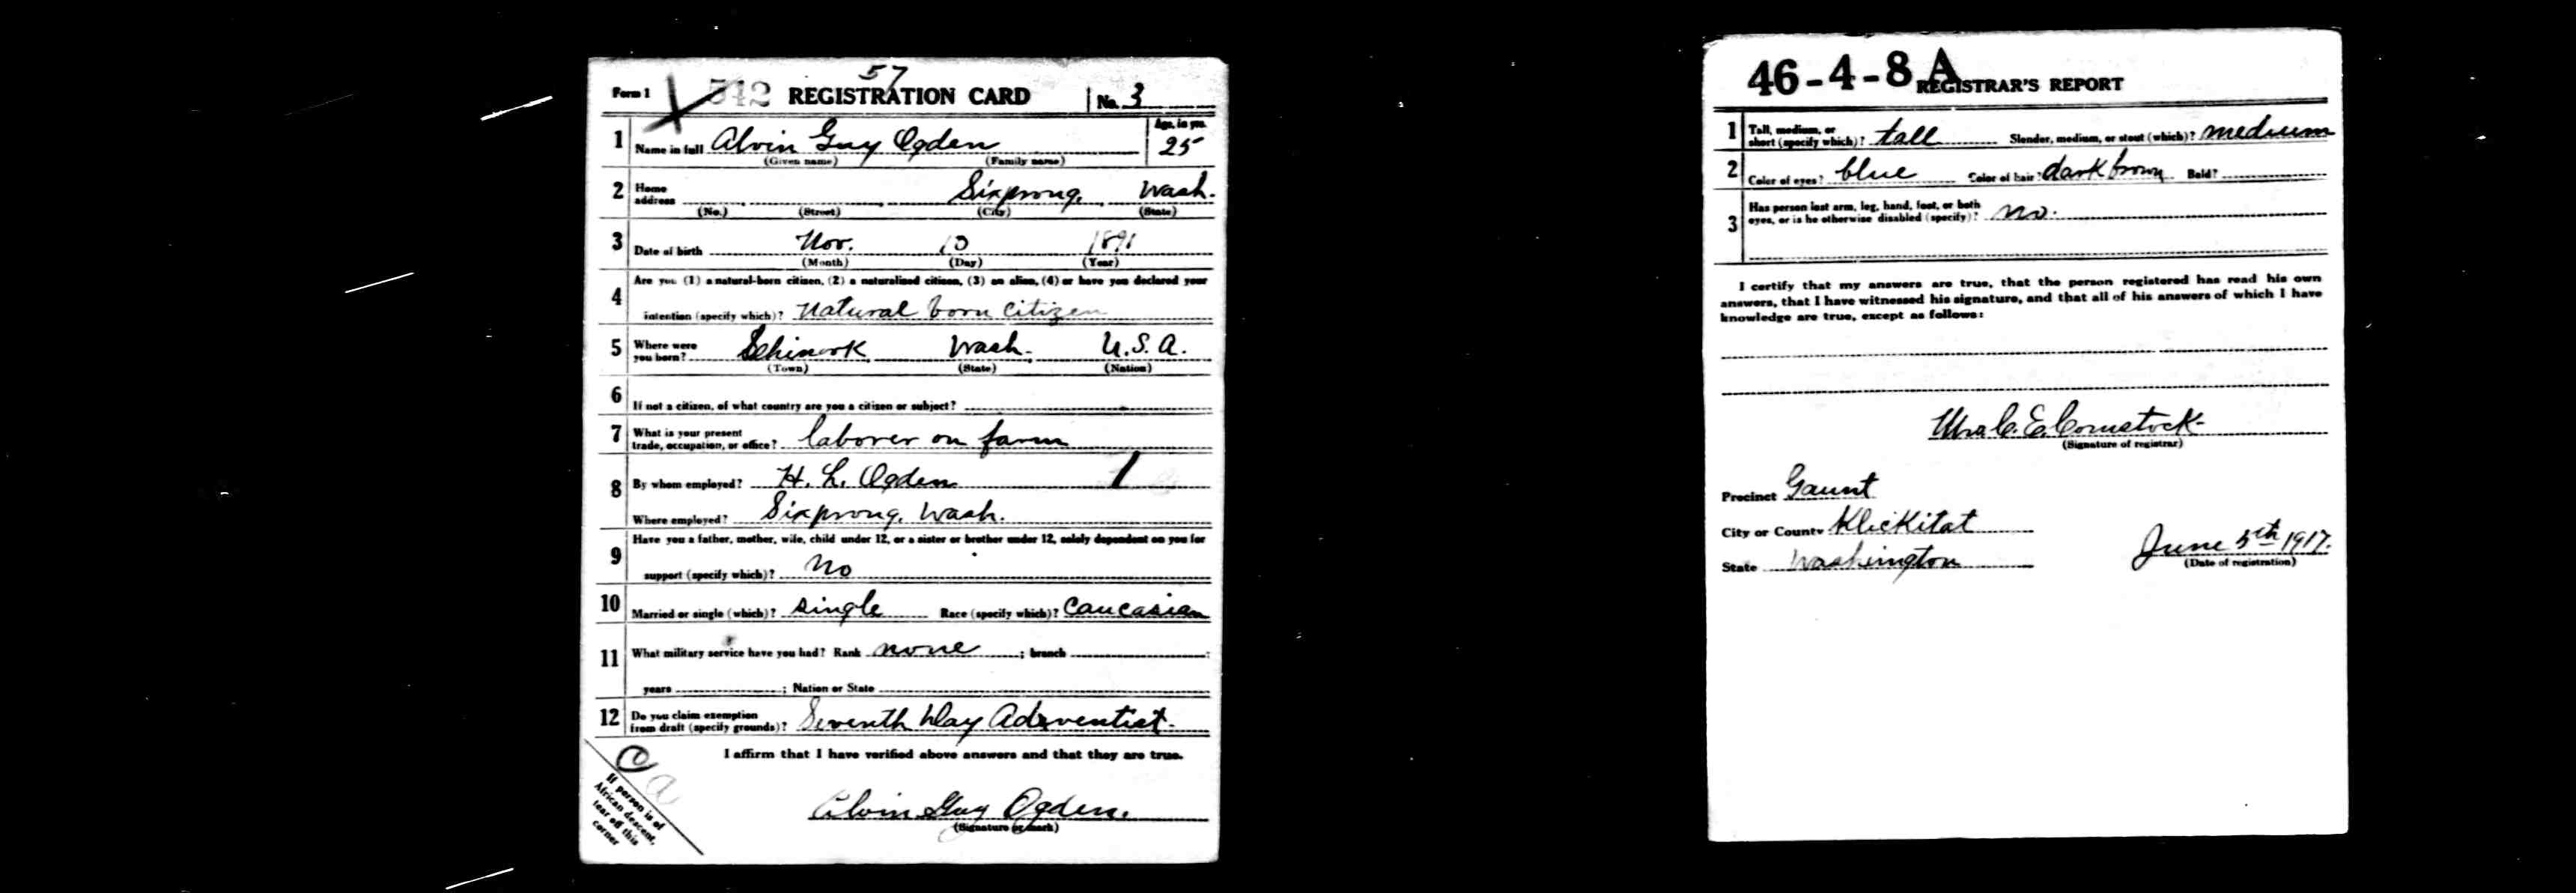 57
Form 1 542 REGISTRATION CARD No. 3
1 Name in full Alvin Guy Ogden Age, in yrs. 25
(Given name) (Family name)
2 Home address Sixprong, Wash.
(No.) (Street) (City) (State)
3 Date of birth Nov. 10 1891
(Month) (Day) (Year)
4 Are you (1) a natural-born citizen, (2) a naturalized citizen, (3) an alien, (4) or have you declared your
intention (specify which)? Natural born citizen
5 Where were you born? Wash. U.S.A.
(Town) (State) (Nation)
6 If not a citizen, of what country are you a citizen or subject?
7 What is your present trade, occupation, or office? laborer on farm
8 By whom employed? H. L. Ogden 1
Where employed? Sixprong, Wash.
9 Have you a father, mother, wife, child under 12, or a sister or brother under 12, solely dependent on you for
support (specify which)? No
10 Married or single (which)? single Race (specify which)? Caucasian
11 What military service have you had? Rank none ; branch ;
years ; Nation or State
12 Do you claim exemption from draft (specify grounds)? Seventh Day Adventist.
I affirm that I have verified above answers and that they are true.
Alvin Guy Ogden.
(Signature or mark)
If person is of
African descent,
tear off this
corner
46-4-8 A
REGISTRAR'S REPORT
1 Tall, medium, or short (specify which)? tall Slender, medium, or stout (which)? medium
2 Color of eyes? blue Color of hair? dark brown Bald?
3 Has person lost arm, leg, hand, foot, or both
eyes, or is he otherwise disabled (specify)? no.
I certify that my answers are true, that the person registered has read his own
answers, that I have witnessed his signature, and that all of his answers of which I have
knowledge are true, except as follows:
Mrs C. E. Comstock
(Signature of registrar)
Precinct Gaunt
City or County Klickitat
State Washington June 5th 1917.
(Date of registration)